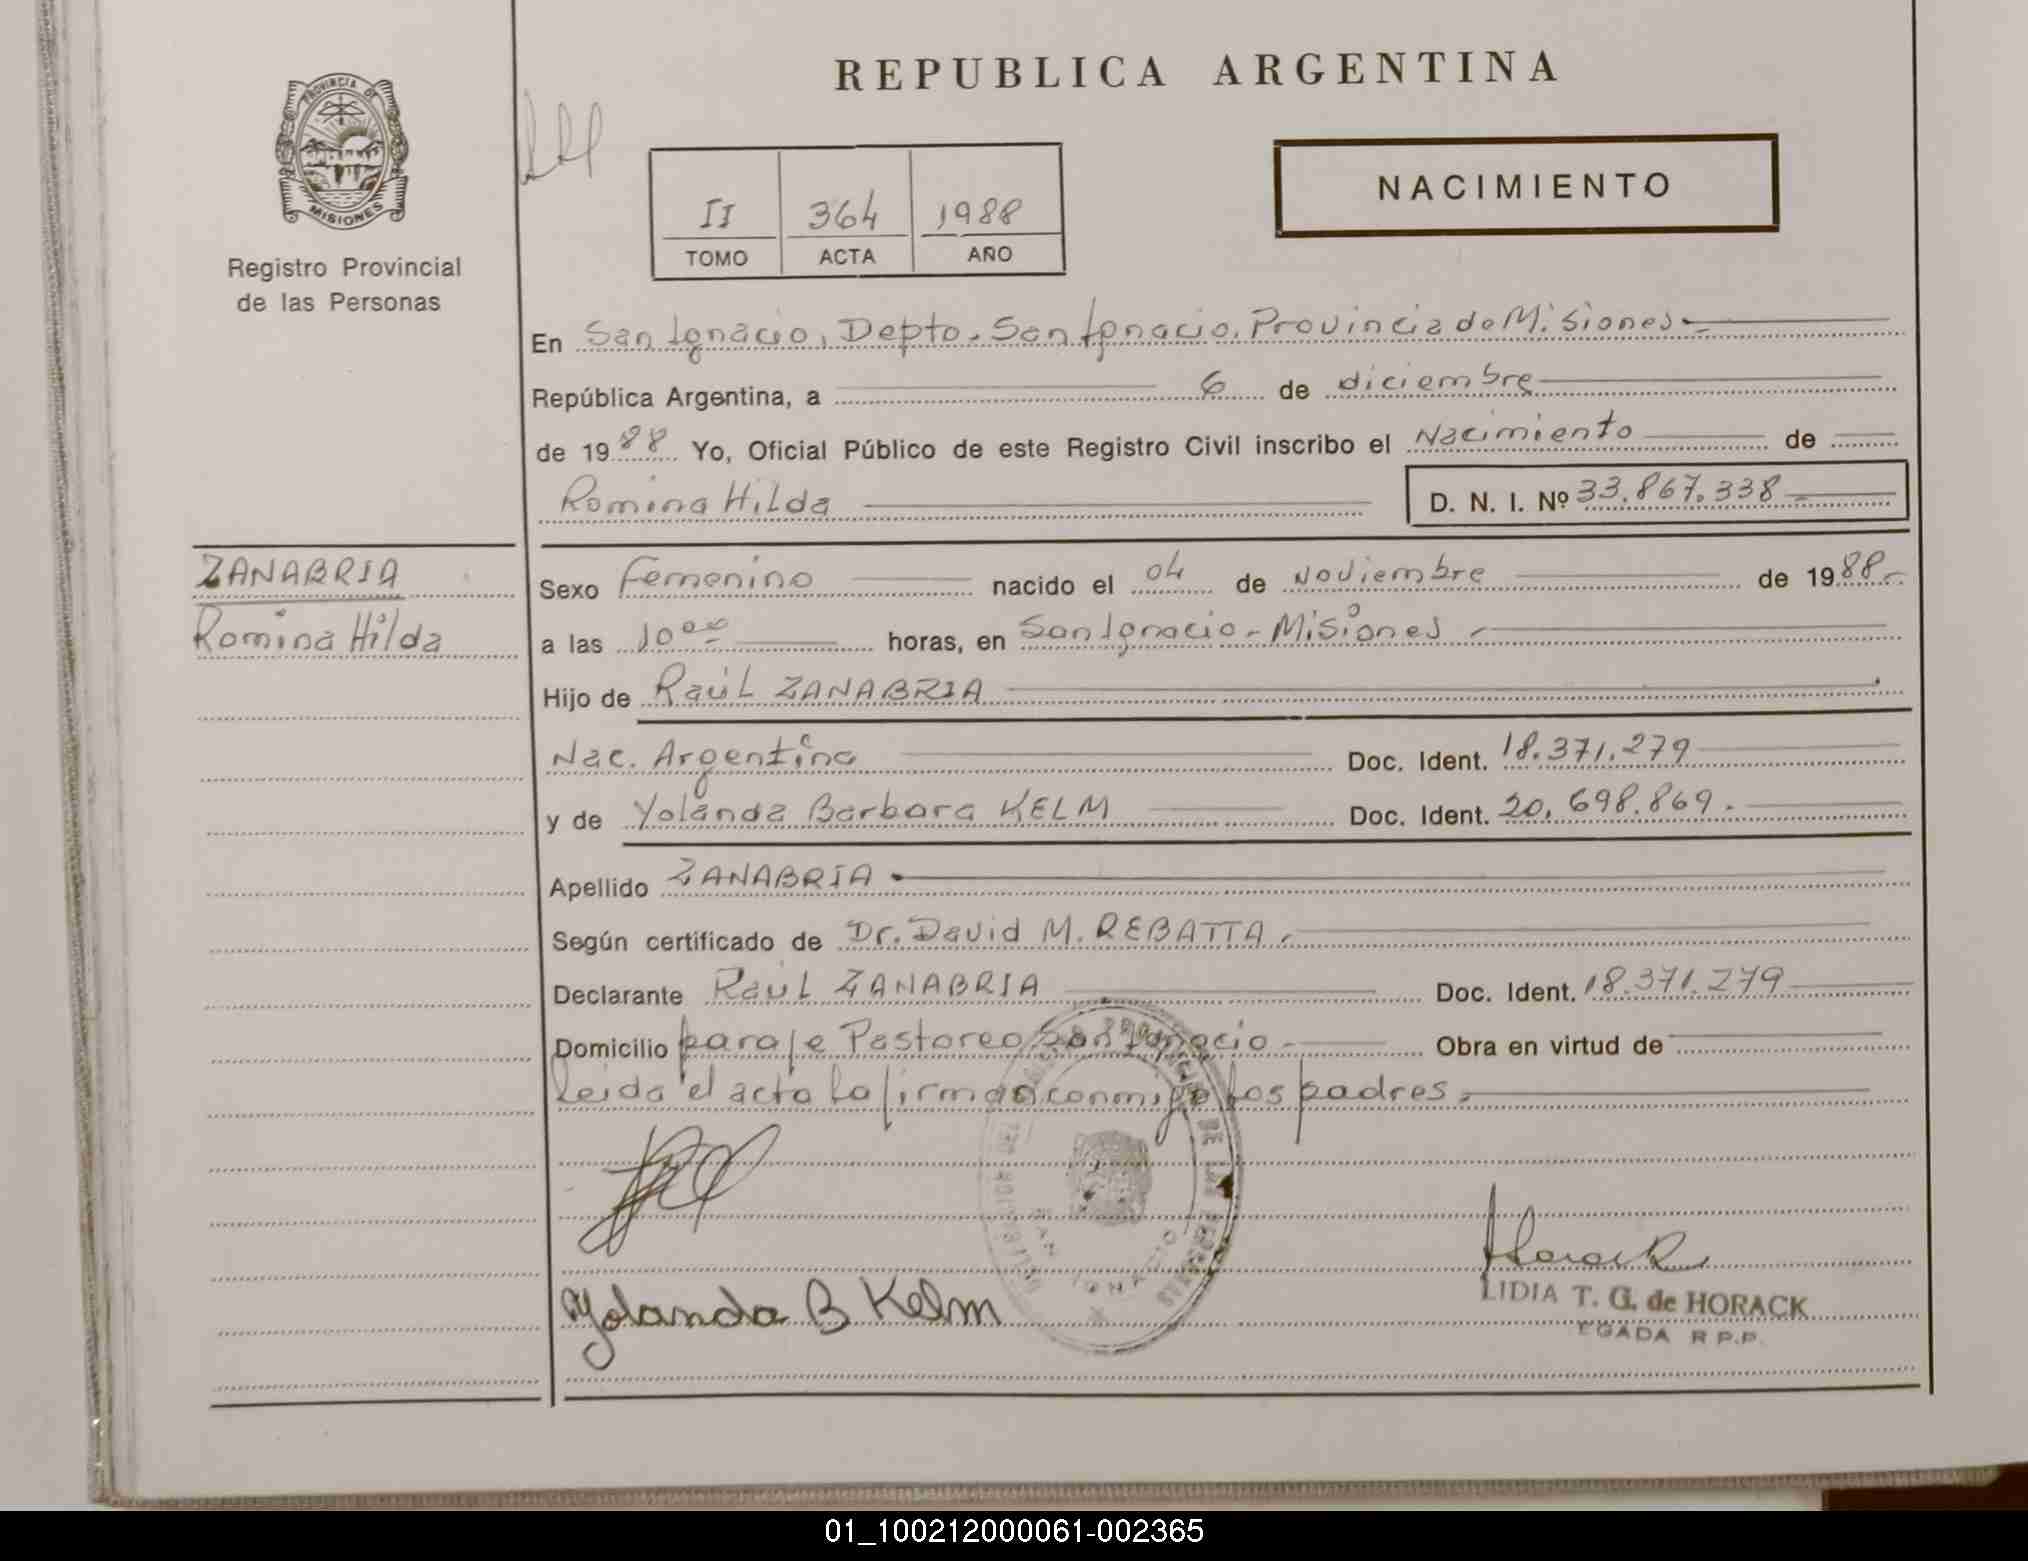 REPUBLICA ARGENTINA
PROVINCIA DE
MISIONES
Registro Provincial
de las Personas
II 364 1988
TOMO ACTA AÑO
NACIMIENTO
En San Ignacio, Depto. San Ignacio. Provincia de Misiones.
República Argentina, a 6 de diciembre
de 1988 Yo, Oficial Público de este Registro Civil inscribo el Nacimiento de
Romina Hilda D. N. I. Nº 33.867.338
ZANABRIA
Romina Hilda
Sexo Femenino nacido el 04 de Noviembre de 1988
a las 10 00 horas, en San Ignacio - Misiones
Hijo de Raúl ZANABRIA
Nac. Argentina Doc. Ident. 18.371.279
y de Yolanda Barbara KELM Doc. Ident. 20.698.869.
Apellido ZANABRIA
Según certificado de Dr. David M. REBATTA
Declarante Raúl ZANABRIA Doc. Ident. 18.371.279
Domicilio paraje Pastoreo San Ignacio Obra en virtud de
Leida el acta la firman conmigo los padres.
DE LAS PERSONAS
SAN IGNACIO
Yolanda B Kelm
Horack
LIDIA T. G. de HORACK
EGADA R.P.P.
01_100212000061-002365